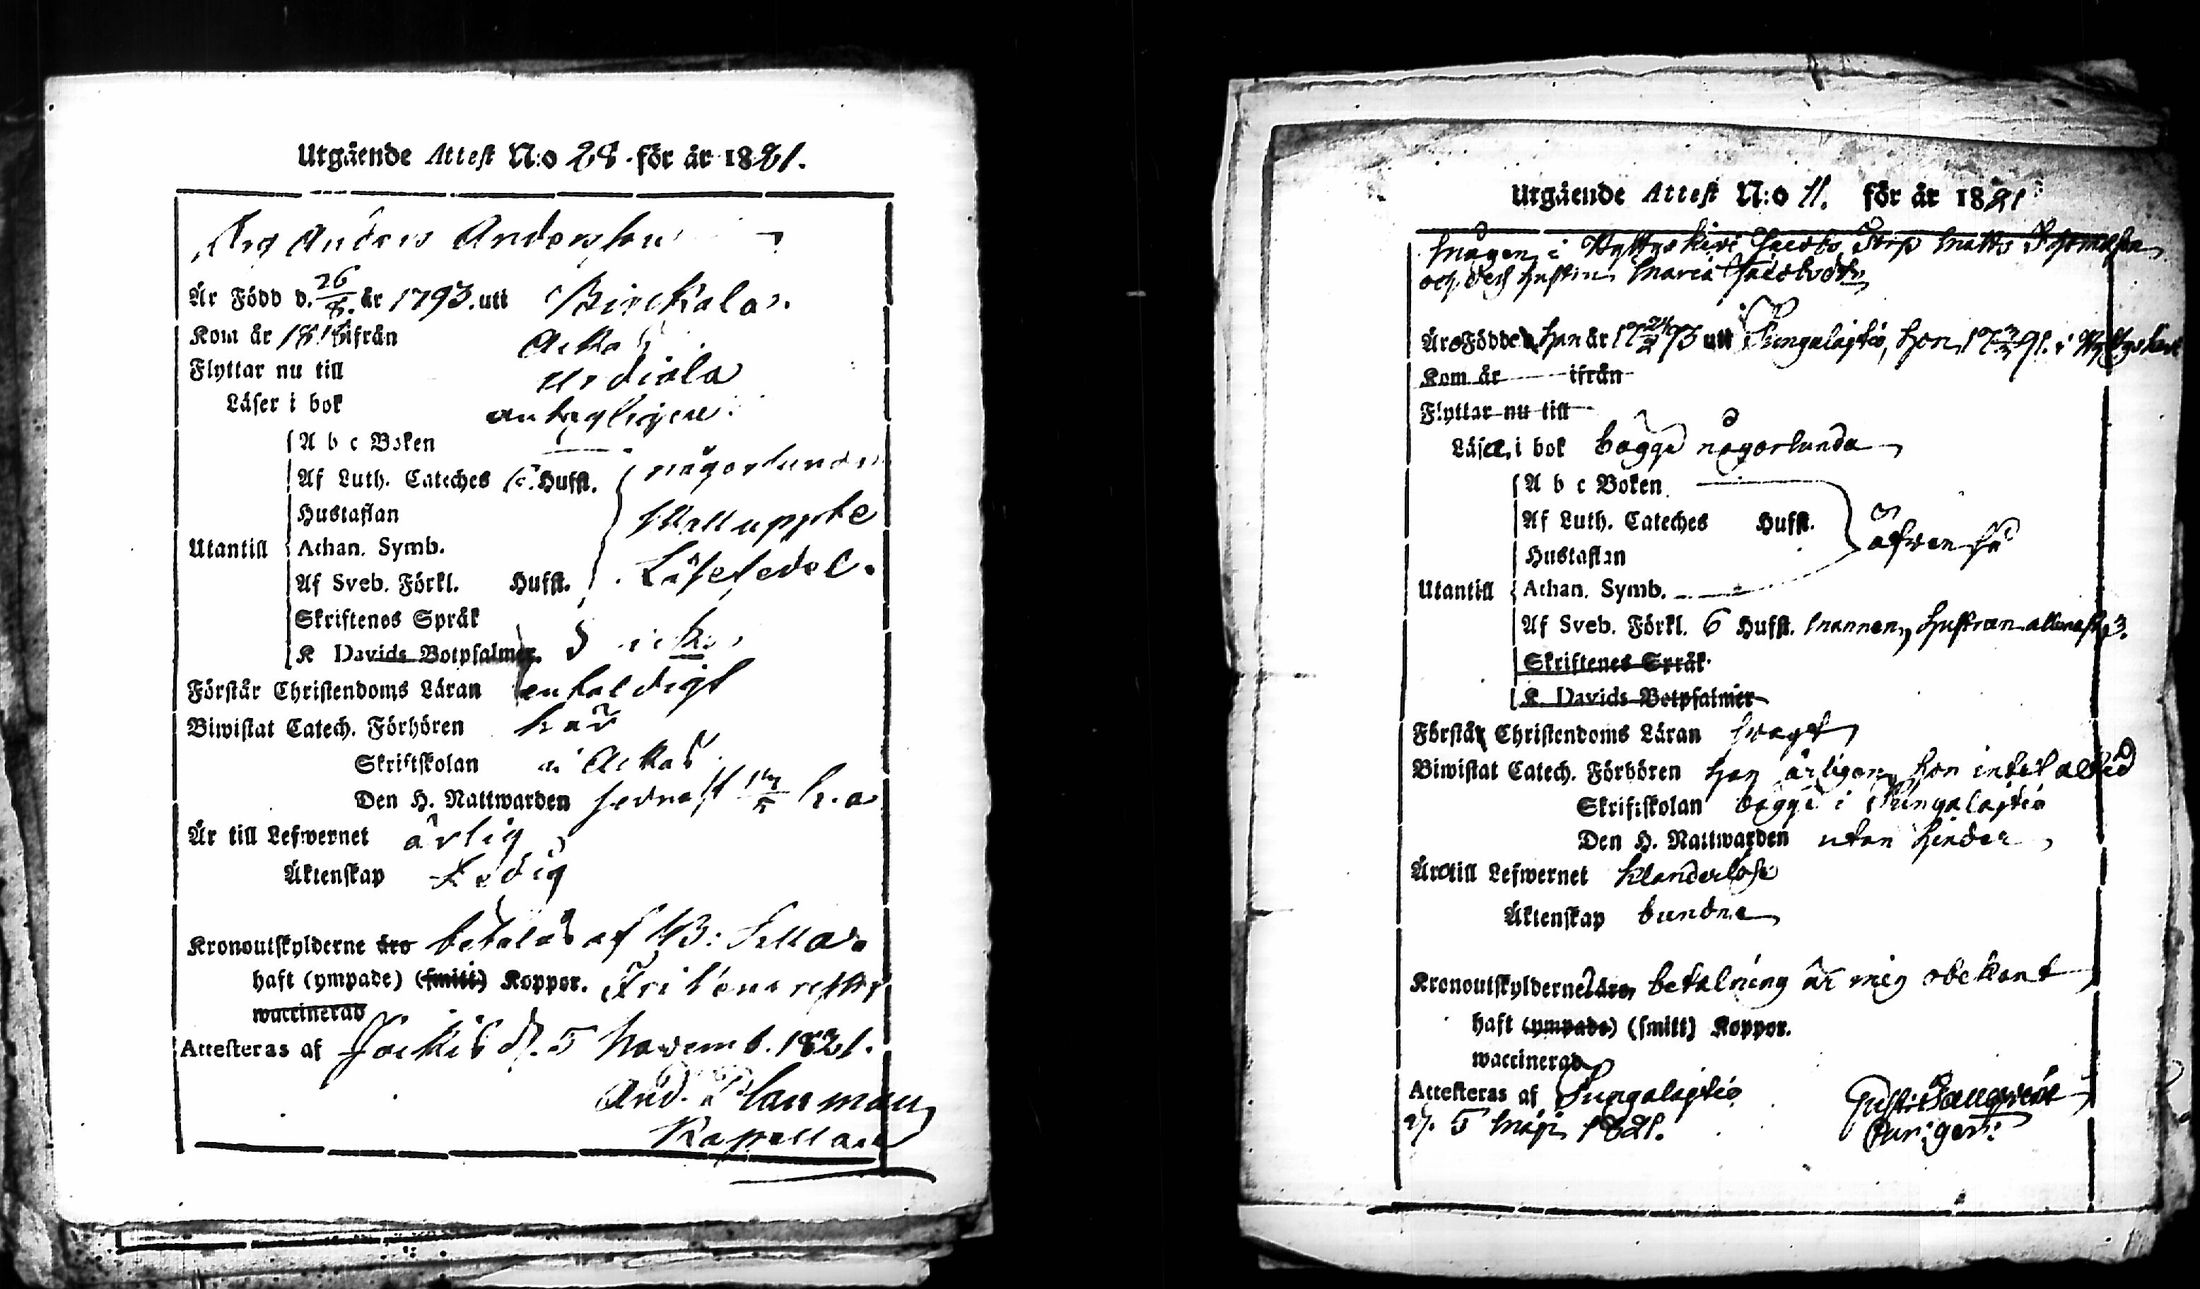 Utgående Attest N:o 28. för år 1821.
Anders Andersson
Är Född d. 26/8. år 1793. uti Birckala
Kom år 1818 ifrån Ackas
Flyttar nu till Urdiala
Läser i bok antagligen.
A b c Boken
Af Luth. Cateches 6. Hufst. någorlunda
Hustaflan
Utantill Athan. Symb.
Af Sveb. Förkl. Hufst. Läsesedel.
Skriftenes Språk
K Davids Botpsalmer.
Förstår Christendoms Läran enfaldigt
Biwistat Catech. Förhören här
Skriftskolan i Ackas
Den H. Nattwarden sednast h. a.
Är till Lefwernet ärlig
Äktenskap Ledig
Kronoutskylderne äro betalas af
haft (ympade) (smitt) Koppor.
waccinerad
Attesteras af Jockis d. 5 Novemb. 1821.
And. Planman
Kapellan
Utgående Attest N:o 11. för år 1821
Mågen i Jacobs Torp Matts Thomasson
och dess hustru Maria Jacobsdr
Äro Födde han år 17 24/2 93 uti Tungalajtio, hon 17 91. i
Kom år ifrån
Flyttar nu till
Läsa i bok bägge någorlunda
A b c Boken
Af Luth. Cateches Hufst.
äfven så
Hustaflan
Utantill Athan. Symb.
Af Sveb. Förkl. 6 Hufst. mannen, hustrun allenast 3.
Skriftenes Språk
K. Davids Botpsalmer
Förstå Christendoms Läran swagt
Biwistat Catech. Förhören han årligen, hon intet altid
Skriftskolan bägge i Tungalajtio
Den H. Nattwarden utan hinder
Äro till Lefwernet klanderlöse
Äktenskap bundne
Kronoutskyldernes äro betalning är mig obekant
haft (ympade) (smitt) Koppor.
waccinerad
Attesteras af Tungalajtio
d. 5 Maji 1821.